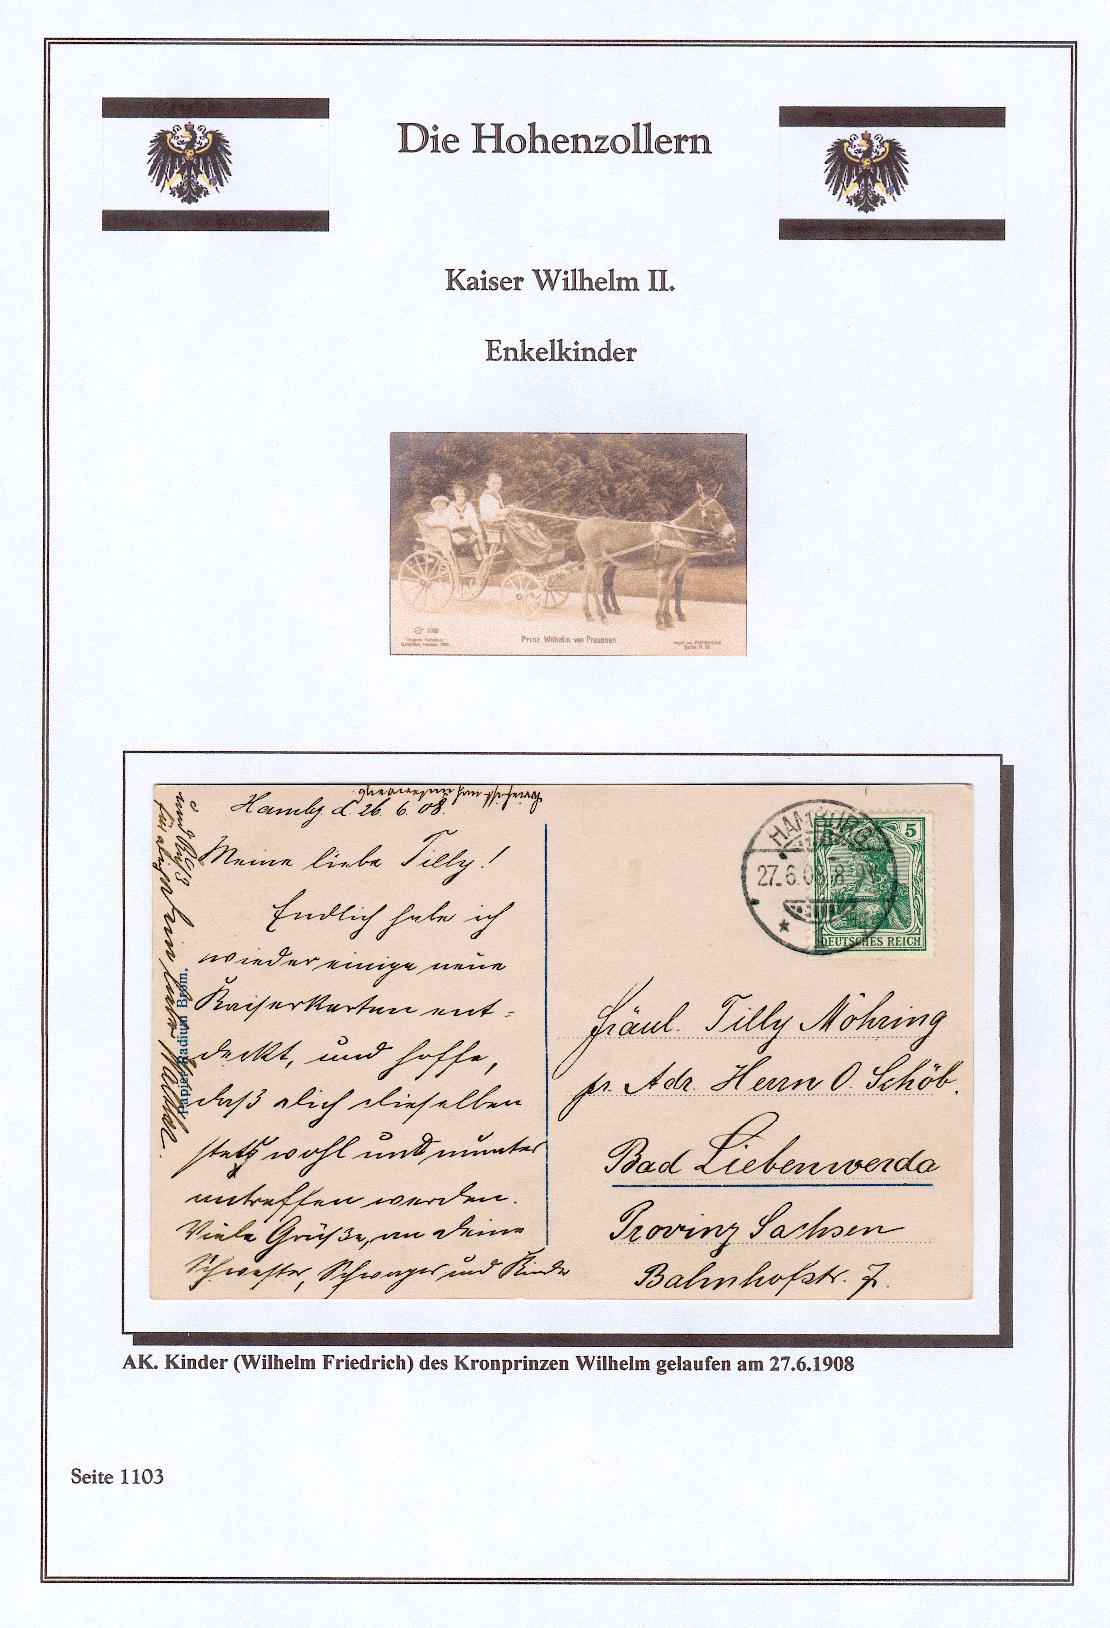 Die Hohenzollern
Kaiser Wilhelm II.
Enkelkinder
Prinz Wilhelm von Preussen
Berlin N.
Hambg d. 26. 6. 08.
Meine liebe Tilly!
Endlich habe ich
wieder einige neue
Kaiserkarten ent=
deckt, und hoffe,
daß dich dieselben
stets wohl und munter
antreffen werden.
Viele Grüße, an deine
Schwester, Schwager und Kinder
Papier Radium Brom.
HAMBURG
27.6.08. 8-9
5
DEUTSCHES REICH
Fräul. Tilly Möhring
pr. Adr. Herrn O. Schöb.
Bad Liebenwerda
Provinz Sachsen
Bahnhofstr. 7.
AK. Kinder (Wilhelm Friedrich) des Kronprinzen Wilhelm gelaufen am 27.6.1908
Seite 1103